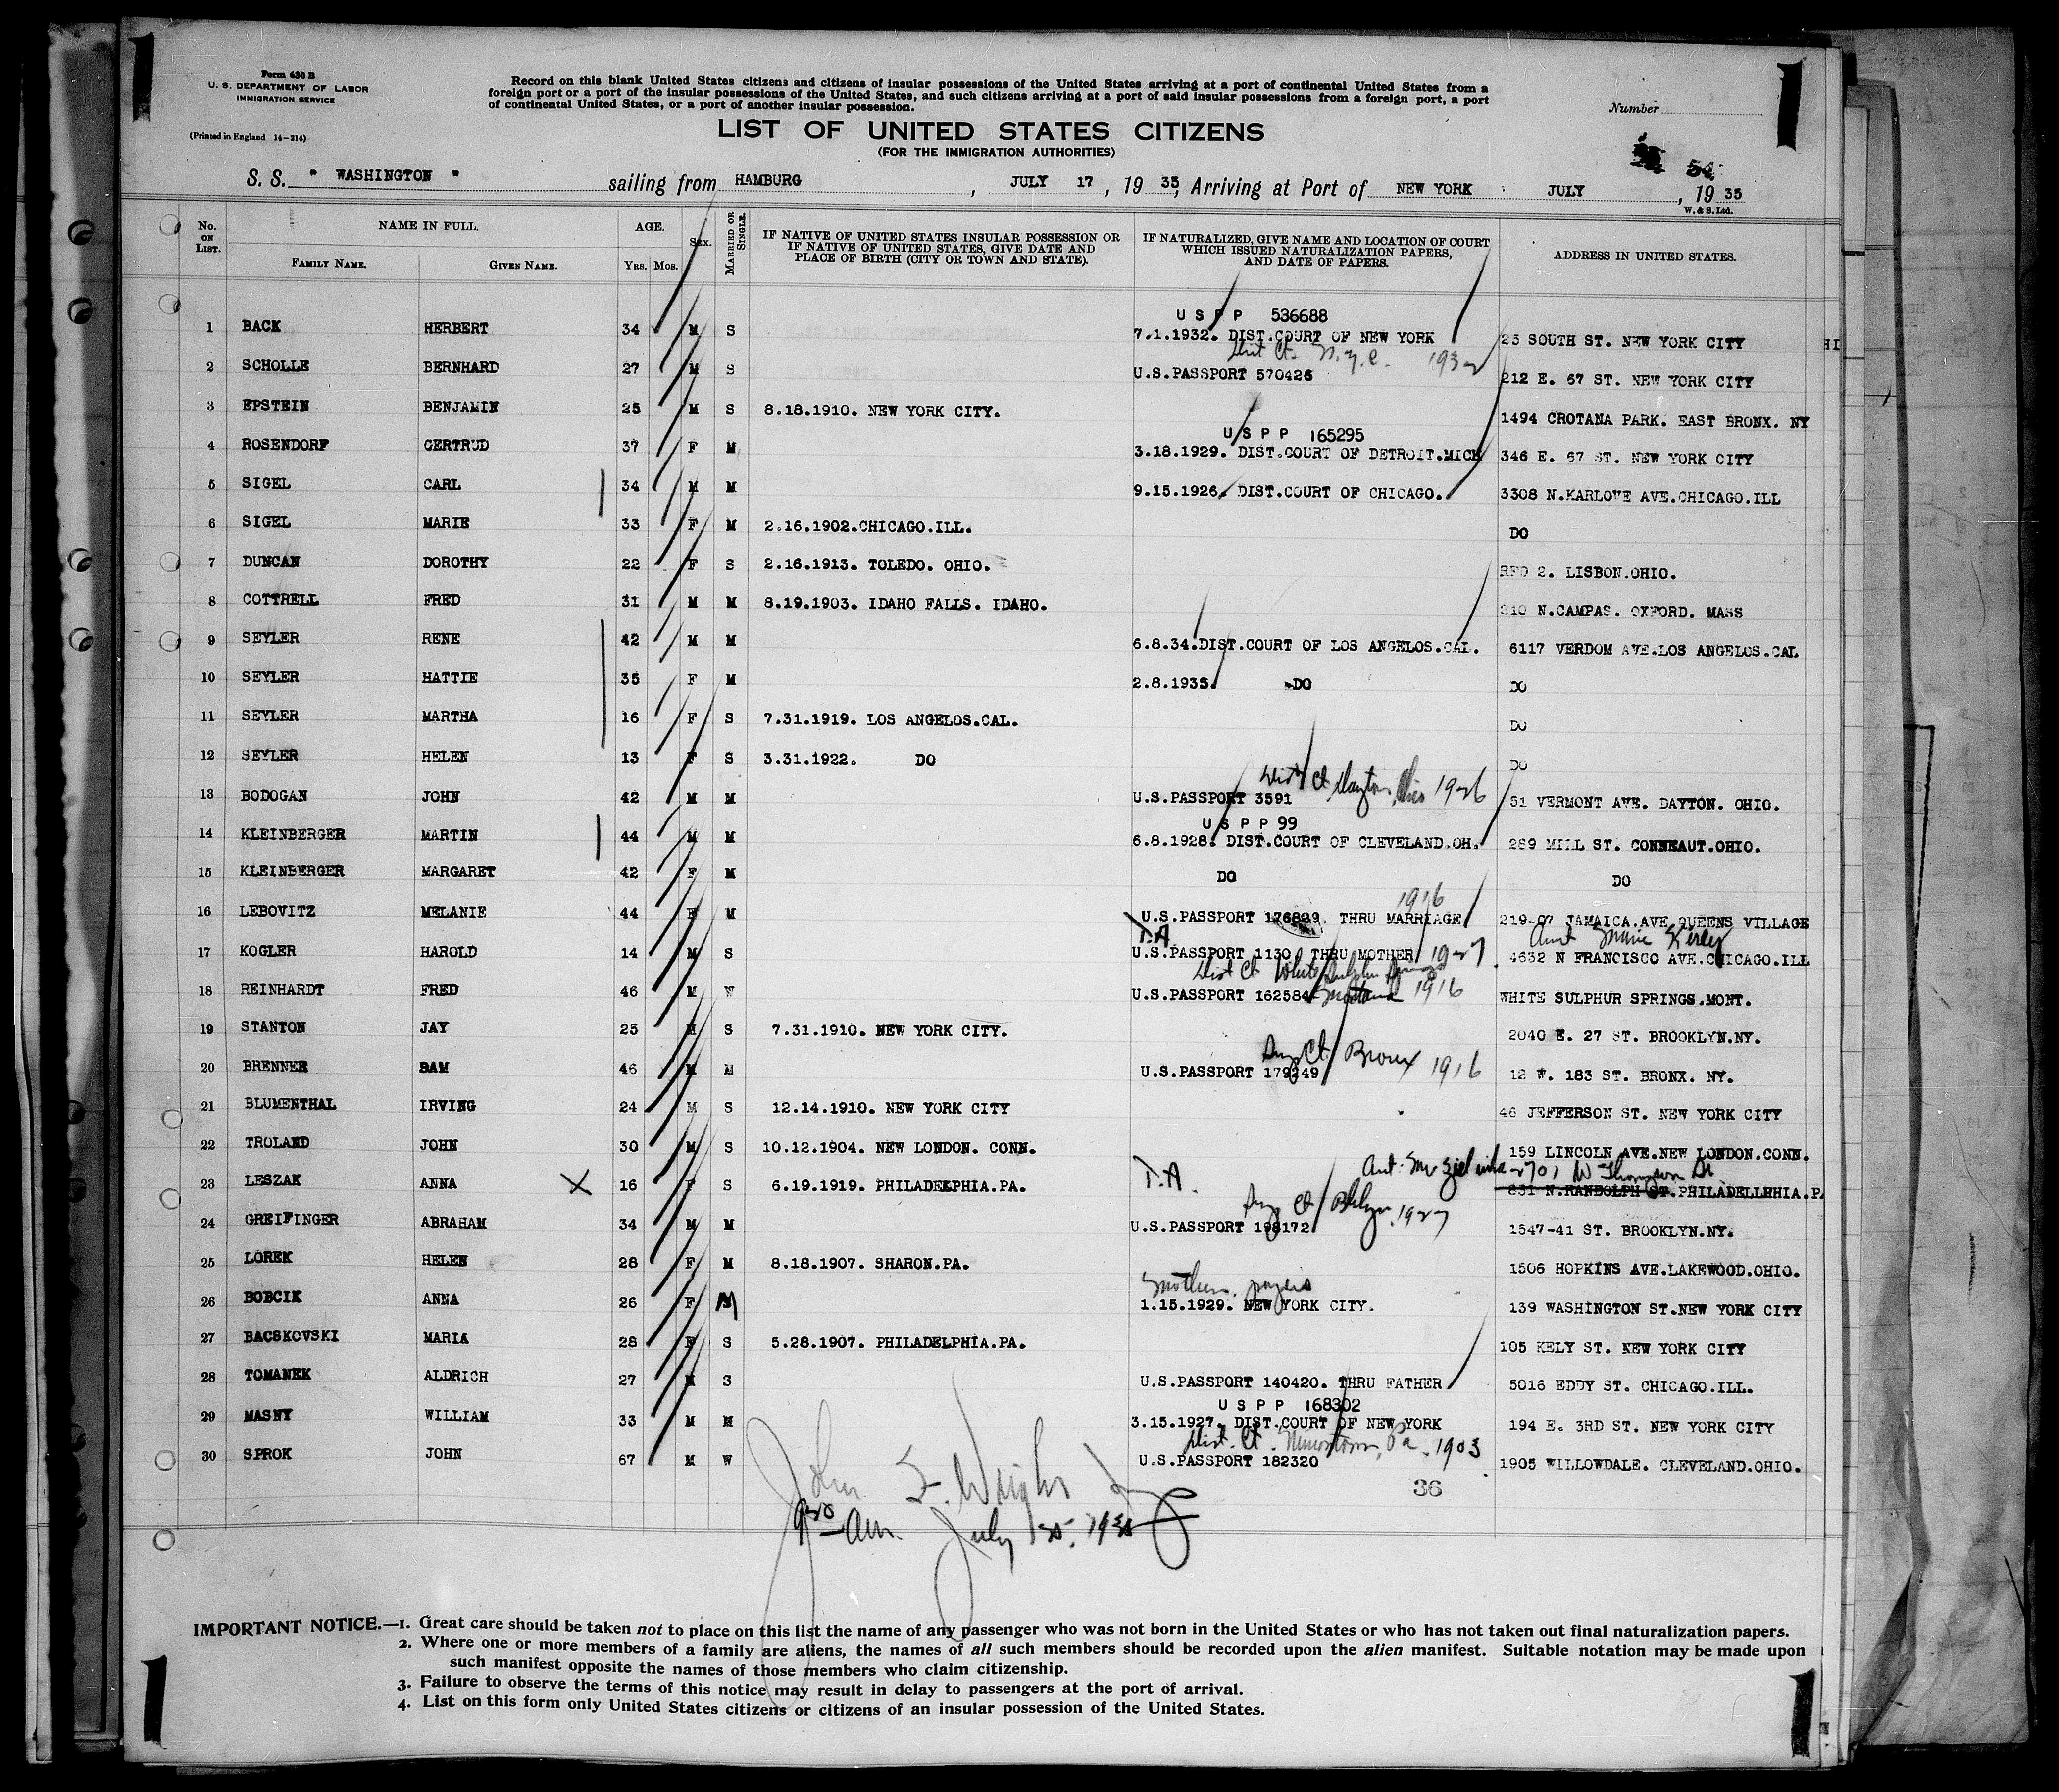 Form 630 B
U. S. DEPARTMENT OF LABOR
IMMIGRATION SERVICE
(Printed in England 14-214)
Record on this blank United States citizens and citizens of insular possessions of the United States arriving at a port of continental United States from a
foreign port or a port of the insular possessions of the United States, and such citizens arriving at a port of said insular possessions from a foreign port, a port
of continental United States, or a port of another insular possession.
Number
LIST OF UNITED STATES CITIZENS
(FOR THE IMMIGRATION AUTHORITIES)
54
S. S. " WASHINGTON " sailing from HAMBURG, JULY 17, 19 35, Arriving at Port of NEW YORK JULY, 19 35
W. & S. Ltd.
No. ON LIST. NAME IN FULL. FAMILY NAME. GIVEN NAME. AGE. YRS. MOS. SEX. MARRIED OR SINGLE. IF NATIVE OF UNITED STATES INSULAR POSSESSION OR IF NATIVE OF UNITED STATES, GIVE DATE AND PLACE OF BIRTH (CITY OR TOWN AND STATE). IF NATURALIZED, GIVE NAME AND LOCATION OF COURT WHICH ISSUED NATURALIZATION PAPERS, AND DATE OF PAPERS. ADDRESS IN UNITED STATES.
U S P P 536688
1 BACK HERBERT 34 M S 7.1.1932. DIST.COURT OF NEW YORK 25 SOUTH ST. NEW YORK CITY
Dist Ct. N.Y.C. 1932
2 SCHOLLE BERNHARD 27 M S U.S.PASSPORT 570426 212 E. 67 ST. NEW YORK CITY
3 EPSTEIN BENJAMIN 25 M S 8.18.1910. NEW YORK CITY. 1494 CROTANA PARK. EAST BRONX. NY
U S P P 165295
4 ROSENDORF GERTRUD 37 F M 3.18.1929. DIST.COURT OF DETROIT.MICH 346 E. 67 ST. NEW YORK CITY
5 SIGEL CARL 34 M M 9.15.1926. DIST.COURT OF CHICAGO. 3308 N.KARLOVE AVE.CHICAGO.ILL
6 SIGEL MARIE 33 F M 2.16.1902.CHICAGO.ILL. DO
7 DUNCAN DOROTHY 22 F S 2.16.1913. TOLEDO. OHIO. RFD 2. LISBON.OHIO.
8 COTTRELL FRED 31 M M 8.19.1903. IDAHO FALLS. IDAHO. 210 N.CAMPAS. OXFORD. MASS
9 SEYLER RENE 42 M M 6.8.34.DIST.COURT OF LOS ANGELOS.CAL. 6117 VERDOM AVE.LOS ANGELOS.CAL
10 SEYLER HATTIE 35 F M 2.8.1935. DO DO
11 SEYLER MARTHA 16 F S 7.31.1919. LOS ANGELOS.CAL. DO
12 SEYLER HELEN 13 F S 3.31.1922. DO DO
Dist Ct Dayton, Ohio 1926
13 BODOGAN JOHN 42 M M U.S.PASSPORT 3591 51 VERMONT AVE. DAYTON. OHIO.
U S P P 99
14 KLEINBERGER MARTIN 44 M M 6.8.1928. DIST.COURT OF CLEVELAND.OH. 289 MILL ST. CONNEAUT.OHIO.
15 KLEINBERGER MARGARET 42 F M DO DO
1916
16 LEBOVITZ MELANIE 44 F M U.S.PASSPORT 176829. THRU MARRIAGE 219-07 JAMAICA.AVE.QUEENS VILLAGE
T.A. Aunt Marie
17 KOGLER HAROLD 14 M S U.S.PASSPORT 1130 THRU MOTHER 1927 4632 N FRANCISCO AVE.CHICAGO.ILL
Dist Ct White Sulphur Springs
18 REINHARDT FRED 46 M W U.S.PASSPORT 162584 Montana 1916 WHITE SULPHUR SPRINGS.MONT.
19 STANTON JAY 25 M S 7.31.1910. NEW YORK CITY. 2040 E. 27 ST. BROOKLYN.NY.
Sup Ct. Bronx 1916
20 BRENNER SAM 46 M M U.S.PASSPORT 179249 12 W. 183 ST. BRONX. NY.
21 BLUMENTHAL IRVING 24 M S 12.14.1910. NEW YORK CITY 46 JEFFERSON ST. NEW YORK CITY
22 TROLAND JOHN 30 M S 10.12.1904. NEW LONDON. CONN. 159 LINCOLN AVE.NEW LONDON.CONN.
T.A. 2701 W Thompson St
23 LESZAK ANNA X 16 F S 6.19.1919. PHILADEKPHIA.PA. 831 N.RANDOLPH ST.PHILADELLPHIA.PA
Sup Ct Bklyn. 1927
24 GREIFINGER ABRAHAM 34 M M U.S.PASSPORT 198172 1547-41 ST. BROOKLYN.NY.
25 LOREK HELEN 28 F M 8.18.1907. SHARON.PA. 1506 HOPKINS AVE.LAKEWOOD.OHIO.
Mothers papers
26 BOBCIK ANNA 26 F M 1.15.1929. NEW YORK CITY. 139 WASHINGTON ST.NEW YORK CITY
27 BACSKOVSKI MARIA 28 F S 5.28.1907. PHILADELPHIA.PA. 105 KELY ST. NEW YORK CITY
28 TOMANEK ALDRICH 27 M S U.S.PASSPORT 140420. THRU FATHER 5016 EDDY ST. CHICAGO.ILL.
U S P P 168302
29 MASNY WILLIAM 33 M M 3.15.1927. DIST.COURT OF NEW YORK 194 E. 3RD ST. NEW YORK CITY
Dist. Ct. Pa. 1903
30 SPROK JOHN 67 M W U.S.PASSPORT 182320 1905 WILLOWDALE. CLEVELAND.OHIO.
36
John F. Wright
9 30 am. July 25, 1935
IMPORTANT NOTICE.—1. Great care should be taken not to place on this list the name of any passenger who was not born in the United States or who has not taken out final naturalization papers.
2. Where one or more members of a family are aliens, the names of all such members should be recorded upon the alien manifest. Suitable notation may be made upon
such manifest opposite the names of those members who claim citizenship.
3. Failure to observe the terms of this notice may result in delay to passengers at the port of arrival.
4. List on this form only United States citizens or citizens of an insular possession of the United States.